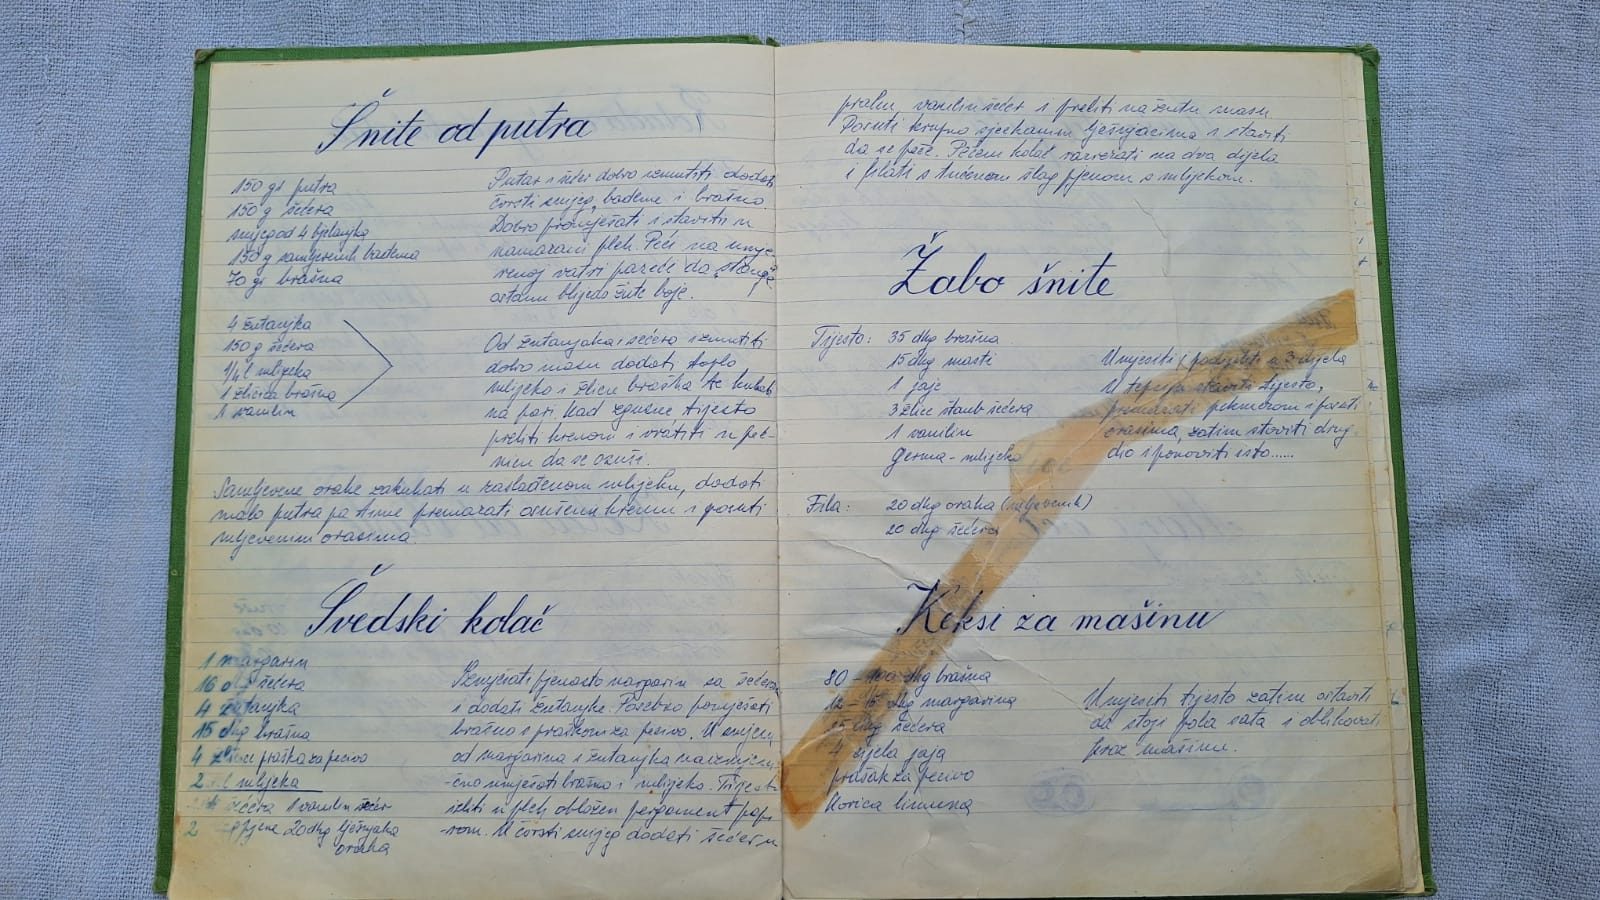 Šnite od putra
150 gr putra
150 g šećera
snijeg od 4 bjelanjka
150 g samljevenih badema
70 gr brašna
Putar i šećer dobro izmutiti dodati
čvrsti snijeg, bademe i brašno.
Dobro promješati i staviti u
namazani pleh. Peći na umje-
renoj vatri pazeći da
ostanu blijedo žute boje.
4 žutanjka
150 g šećera
1/4 l mlijeka
1 žličica brašna
1 vanilin
Od žutanjaka i šećera izmutiti
dobro masu dodati toplo
mlijeko i žlicu brašna te kuhati
na pari. Kad zgusne tijesto
preliti kremom i vratiti u peć-
nicu da se osuši.
Samljevene orahe zakuhati u zaslađenom mlijeku, dodati
malo putra pa time premazati osušenu kremu i posuti
mljevenim orasima.
Švedski kolač
1 margarin
16 šećera
4 žutanjka
15 dkg brašna
4 praška za pecivo
2 mlijeka
šećera 1 vanilin šećer
2 20 dkg lješnjaka
oraha
Izmiješati pjenasto margarin sa šećerom
i dodati žutanjke. Posebno pomješati
brašno s praškom za pecivo. U smjesu
od margarina i žutanjka naizmjeni-
čno umješati brašno i mlijeko. Tijesto
izliti u pleh obložen pergament papi-
rom. U čvrsti snijeg dodati šećer u
prahu, vanilin šećer i preliti na žutu masu.
Posuti krupno sjeckanim lješnjacima i staviti
da se peče. Pečen kolač razrezati na dva dijela
i filati s tučenom šlag pjenom s mlijekom.
Žabo šnite
Tijesto: 35 dkg brašna
15 dkg masti
1 jaje
3 žlice štaub šećera
1 vanilin
germa - mlijeko
Umjesiti, podijeliti u 3 dijela
U tepsiju staviti tijesto,
premazati pekmezom i posuti
orasima, zatim staviti drugi
dio i ponoviti isto......
Fila: 20 dkg oraha (mljevenih)
20 dkg šećera
Keksi za mašinu
80 - 100 dkg brašna
12 - 15 dkg margarina
25 dkg šećera
4 cijela jaja
prašak za pecivo
korica limuna
Umjesiti tijesto zatim ostaviti
da stoji pola sata i oblikovati
kroz mašinu.